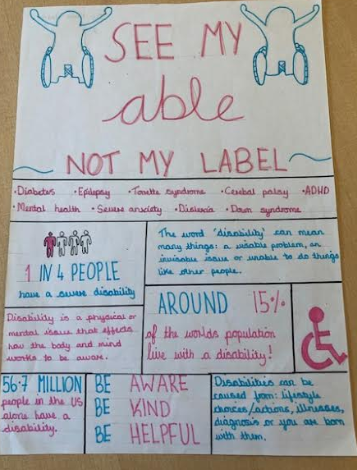 SEE MY
able
NOT MY LABEL
•Diabetes •Epilepsy •Tourette syndrome •Cerebral palsy •ADHD
•Mental health •Severe anxiety •Dislexia •Down syndrome
1 IN 4 PEOPLE
have a severe disability
The word 'disability' can mean
many things: a visable problem, an
invisable issue or unable to do things
like other people.
Disability is a physical or
mental issue that effects
how the body and mind
works to be aware.
AROUND 15%
of the worlds population
live with a disability!
56.7 MILLION
people in the US
alone have a
disability.
BE AWARE
BE KIND
BE HELPFUL
Disabilities can be
caused from: lifestyle
choices/actions, illnesses,
diagnosis or you are born
with them.